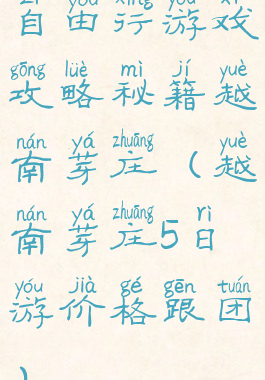 zì yóu xíng yóu xì
自由行游戏
gōng lüè mì jí yuè
攻略秘籍越
nán yá zhuāng yuè
南芽庄(越
nán yá zhuāng rì
南芽庄5日
yóu jià gé gēn tuán
游价格跟团
)